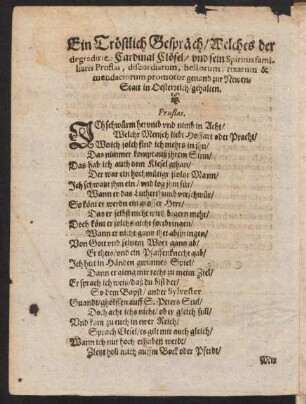 Ein Tröstlich Gespräch/ Welches der
degradirte Cardinal Clösel/ vnd sein Spiritus fami-
liaris Pruflas, discordiarum, bellorum, rixarum &
mendaciorum promotor genand zur Newen
Statt in Oesterreich/ gehalten.
Pruflas.
ICh schwürm herumb vnd nimb in Acht/
Welchr Mensch liebt Hoffart oder Pracht/
Wo ich solch find ich mehrs in jhn/
Das nimmer kompt auß jhrem Sinn/
Das hab ich auch dem Klesel gethan/
Der war ein hochmütiger stoltzer Mann/
Ich schwatzt jhm ein/ vnd log jhm für/
Wann er das Lutherthumb verschwür/
So könt er werden ein grosser Herr/
Das er selbst nicht wird begern mehr/
Doch könt er solchs nicht fortbringen/
Wann er nicht gantz thet abspringen/
Von Gott vnd seinem Wort gantz ab/
Er thets/ vnd ein Pfaffenknecht gab/
Ich hat in Händen gewunnes Spiel/
Dann er gieng mir recht zu meim Ziel/
Er sprach ich weis/ daß du bist der/
So dem Bapst/ ander Sylvester
Guandt/ gholffen auff S. Peters Stul/
Doch acht ichs nicht/ ob er gleich full/
Vnd kam zu euch in ewer Reich/
Sprach Clesel/ es gilt mir auch gleich/
Wann ich nur hoch erhaben werdt/
Zieht holl nach auffm Bock oder Pferdt/
Mit